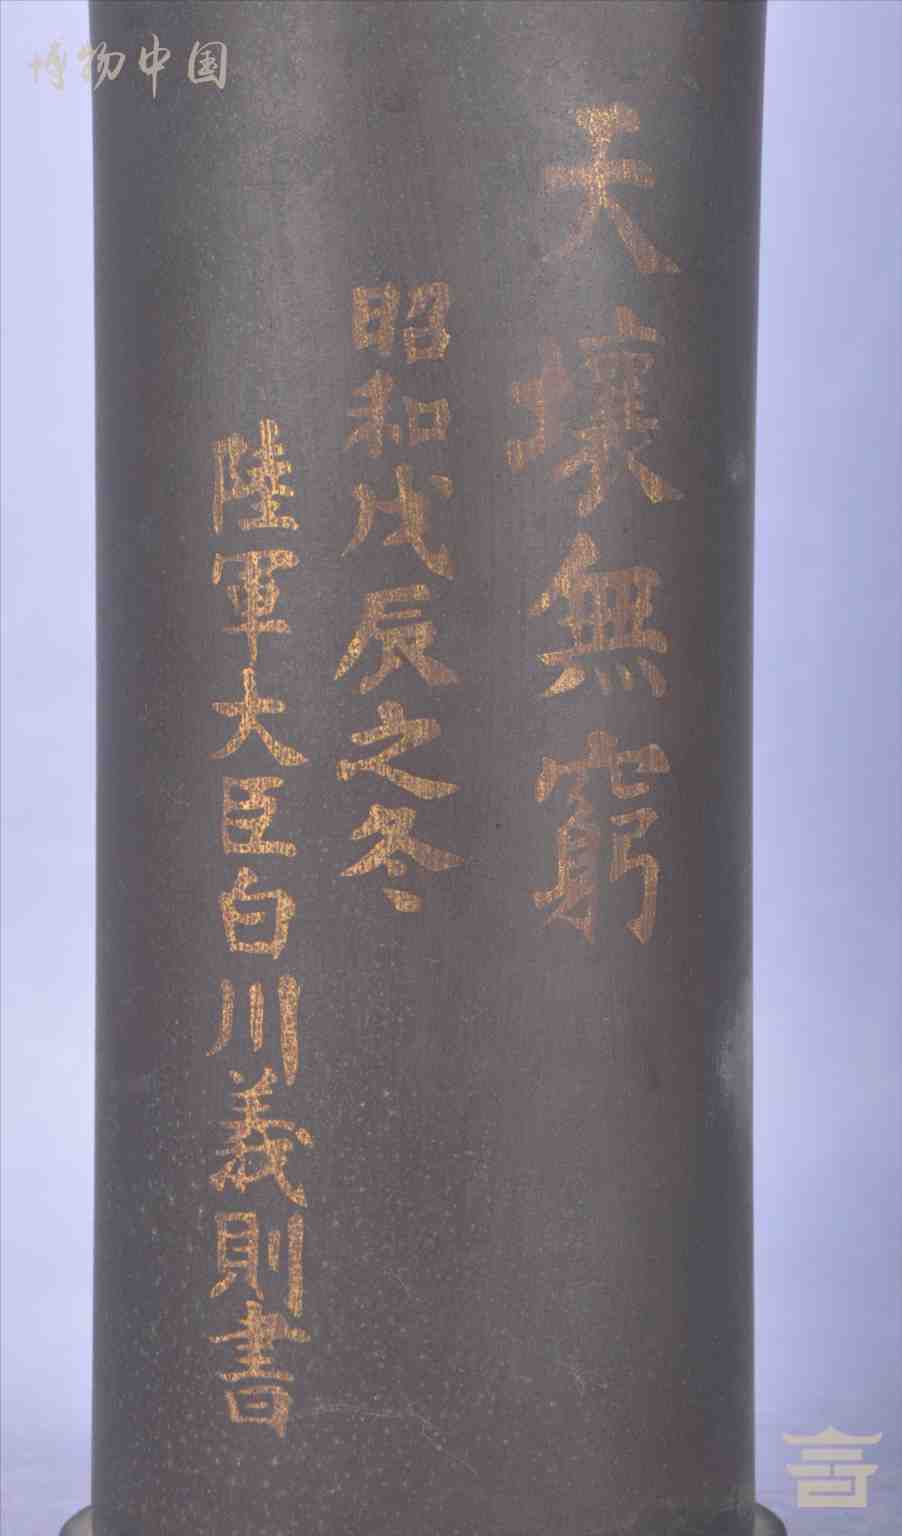 博物中国
天壤無窮
昭和戊辰之冬
陸軍大臣白川義則書